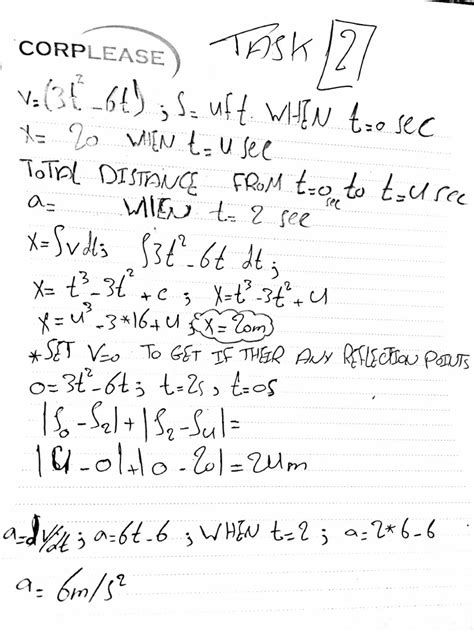 CORPLEASE
TASK 2
V=(3t²-6t) ; S= 4ft WHEN t=0 sec
X= 20 WHEN t=4 sec
TOTAL DISTANCE FROM t=0 sec to t=4 sec
a= WHEN t= 2 sec
X=∫vdt; ∫3t²-6t dt;
X= t³-3t²+c ; X=t³-3t²+4
X=4³-3*16+4 ; X=20m
*SET V=0 TO GET IF THEIR ANY REFLECTION POINTS
0=3t²-6t; t=2s, t=0s
|S₀-S₂|+|S₂-S₄|=
|4-0|+|0-20|=24m
a=dv/dt ; a=6t-6 ; WHEN t=2 ; a=2*6-6
a= 6m/s²